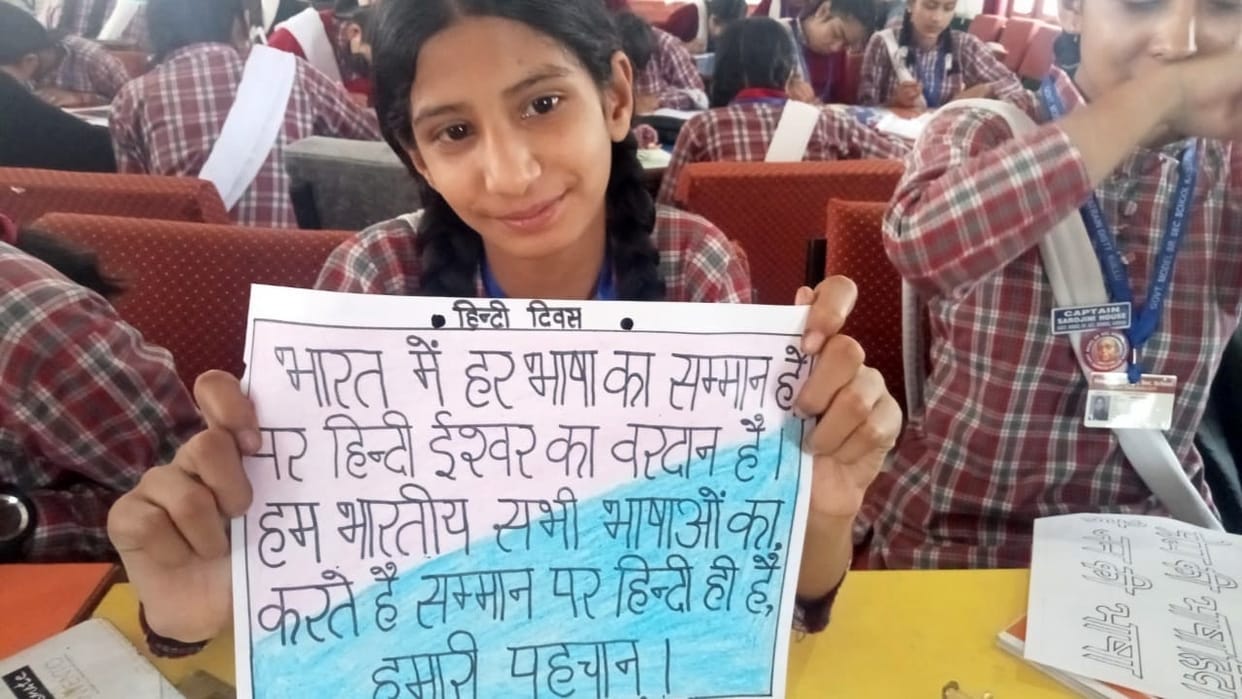 • हिन्दी दिवस •
भारत में हर भाषा का सम्मान है,
पर हिन्दी ईश्वर का वरदान है।
हम भारतीय सभी भाषाओं का,
करते हैं सम्मान पर हिन्दी ही है,
हमारी पहचान।
CAPTAIN
SAROJINI HOUSE
GOVT. MODEL SR. SEC. SCHOOL